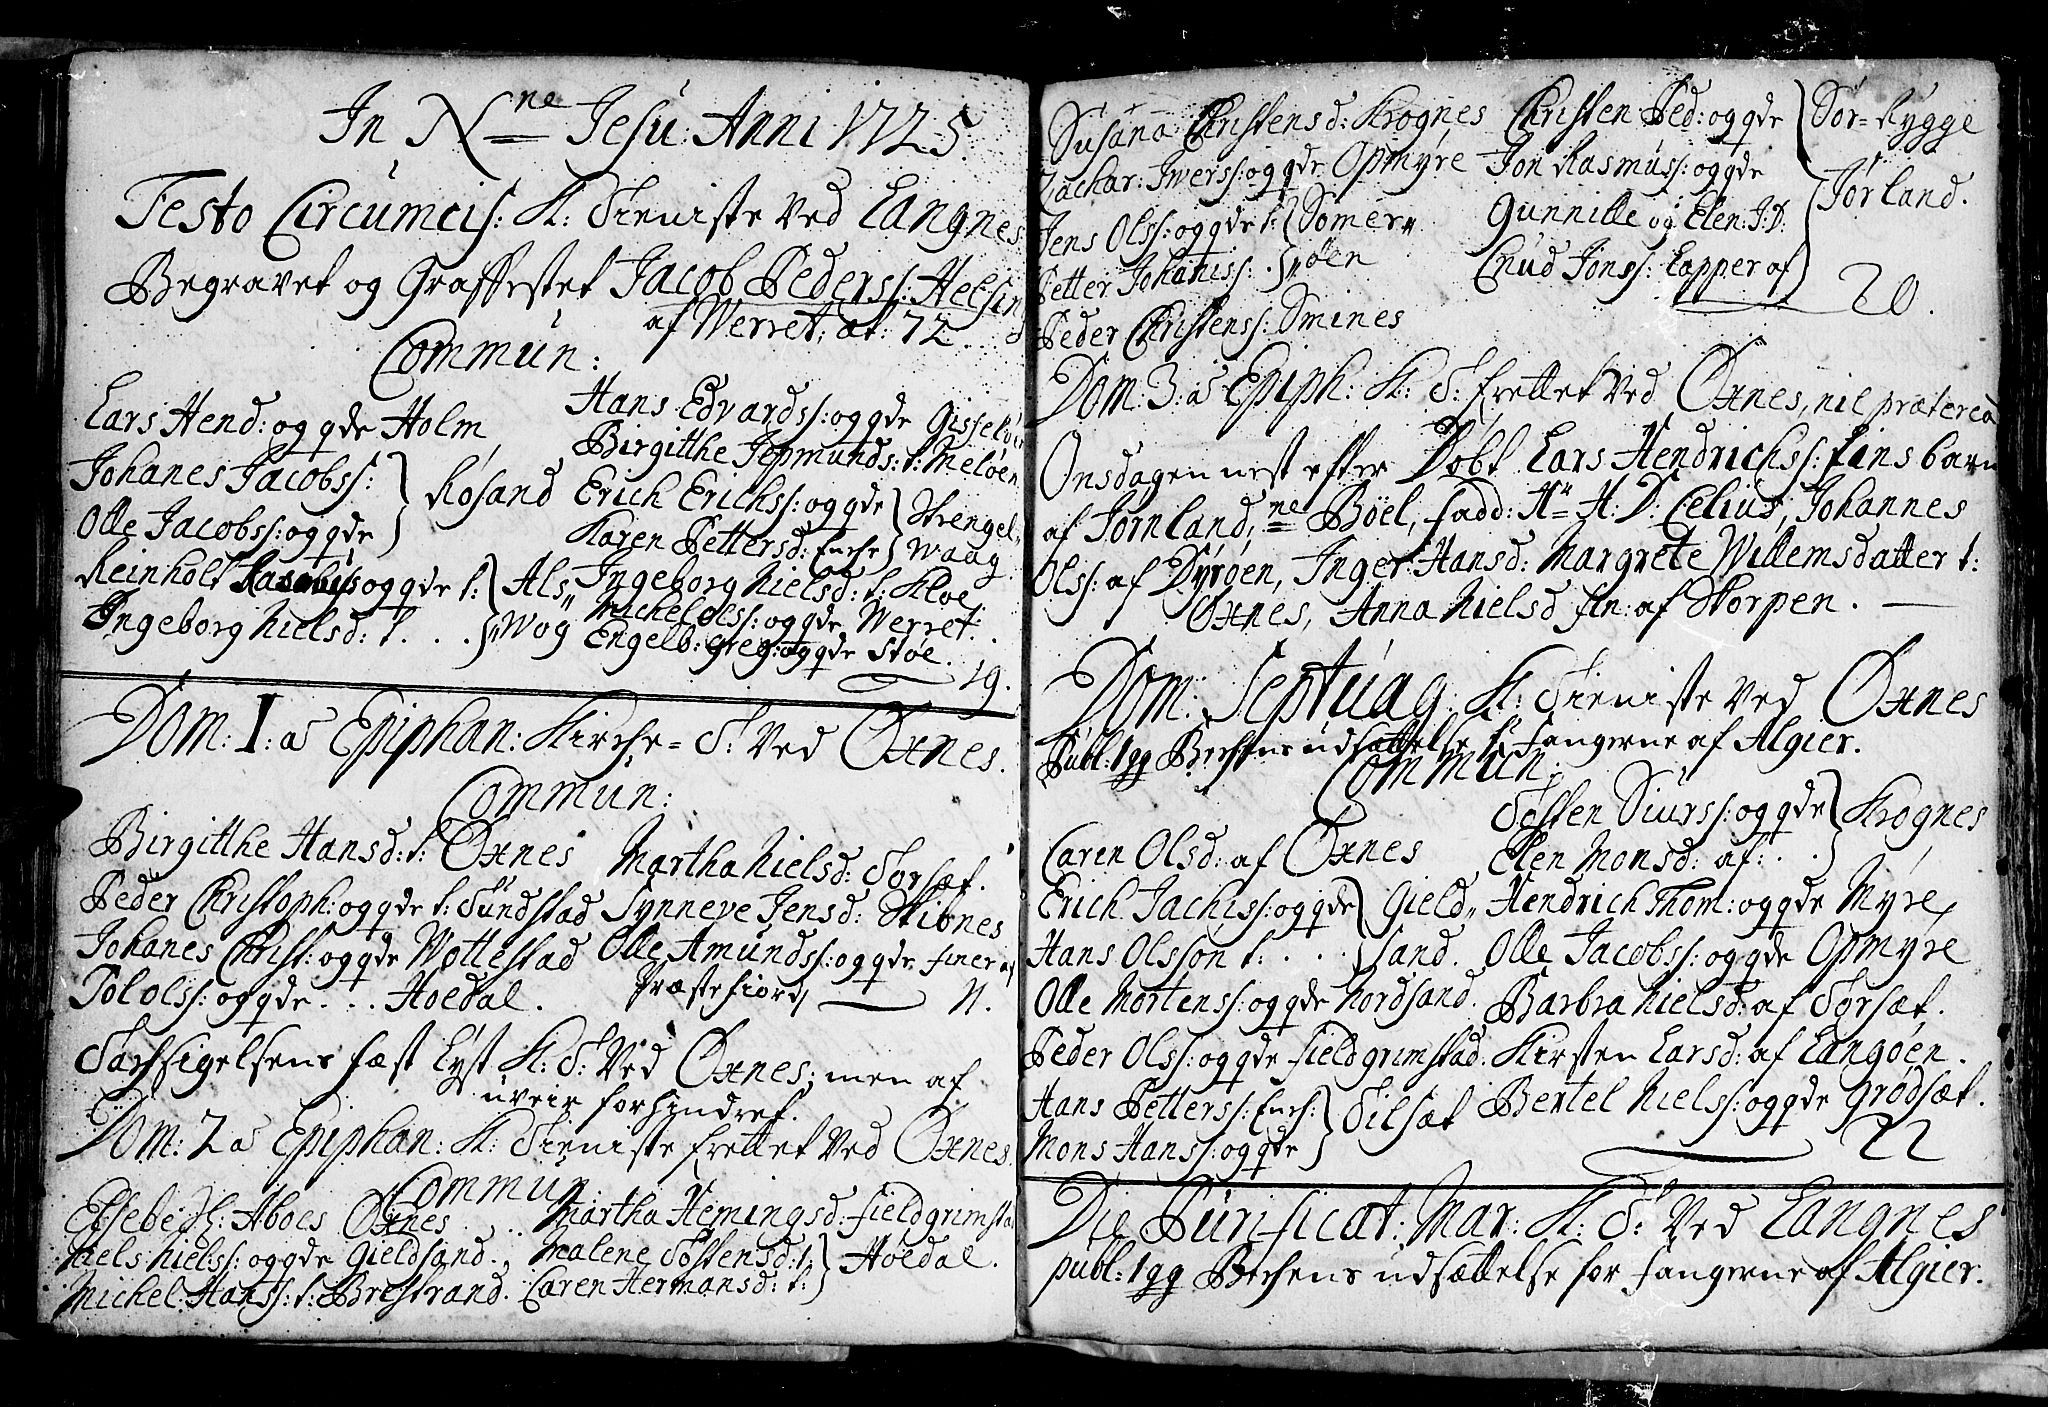 In N=ne Jesu Anni 1725
Festo Circumcis: K: Tieniste Ved Langnes:
Begravet og Graffestet Jacob Peders: Helsing
af Werret: æt: 72
Commun:
Lars Hend: og qde Holm
Johanes Jacobss: } Røsand
Olle Jacobss: og qde
Reinholt og qde t: } Als„
Ingeborg Nielsd: t. . . „Wog
Hans Edvardss: og qde Gisseløe
Birgitthe Jepmunds: t: Meløen
Erich Erichss: og qde } Strengel„
Karen Pettersd: Enche Waag
Ingeborg Nielsd: t: Kloe
Michel Olss: og qde Werret:
Engelb: Greg: og qde Støe. 19.
Dom: I: a Epiphan: Kirche= T: Ved Øxnes.
Commun:
Birgitthe Hansd: t: Øxnes
Peder Christoph: og qde t: Sundstad
Johanes Christ: og qde Wottestad
Pol Olss: og qde . . . Hoedal.
Martha Nielsd: Torsæt.
Synneve Jensd: Skibnes
Olle Amundss: og qde finer af
Præstefiord, 11.
Tachsigelsens fæst Lyst K: T: Ved Øxnes, men af
uveir forhindret.
Dom: 2 a Epiphan: K: Tieniste frettet Ved Øxnes.
Commun
Elsebe H: Aboes Øxnes . . .
Niels Nielss: og qde Gieldsand.
Michel Hanss: t: Brestrand.
Martha Hemingsd: Fieldgrimsta
Malene Tostensd: t: } Hoedal.
Caren Hermansd: t:
Susana Christensd: Krognes
Zachar: Iwerss: og qde Opmyre
Jens Olss: og qde t: } Somer„
Petter Johanss: . „øen
Peder Christenss: Smines
Christen Ped: og qde } Sør=Rygge
Jon Rasmuss: og qde
Gunnille og Elen: J: D: } Jørland.
Cnud Jonss: Lapper af
20.
Dom: 3: a Epiph: K: T: frettet Ved Øxnes, nil præterea
Onsdagen nest efter Døbt Lars Hendrichss: fins barn
af Jørnland, ne Boel, fadd: Hr H: D: Celius, Johannes
Olss: af Dyrøen, Inger Hansd: Margrete Willemsdatter t:
Øxnes, Anna Nielsd fin: af Skorpen.
Dom: Septuag: K: Tieniste Ved Øxnes
Publ: 1 gg Bechens udsættelse f: fangerne af Algier.
Commun:
Caren Olsd: af Øxnes
Erich Jachiss: og qde } Gield„
Hans Olsson t: . . . sand.
Olle Mortenss: og qde Nordsand.
Peder Olss: og qde Fieldgrimstad.
Hans Petterss: Ench: } Tilsæt
Mons Hanss: og qde
Tosten Siurss: og qde } Krognes
Elen Monsd: af: . .
Hendrich Thom: og qde Myre
Olle Jacobss: og qde Opmyre
Barbra Nielsd: af Torsæt.
Kirsten Larsd: af Langøen.
Bertel Nielss: og qde Grødsæt.
22
Die Purificat: Mar: K: T: Ved Langnes
publ: 1 gg Bechens udsættelse for fangerne af Algier.